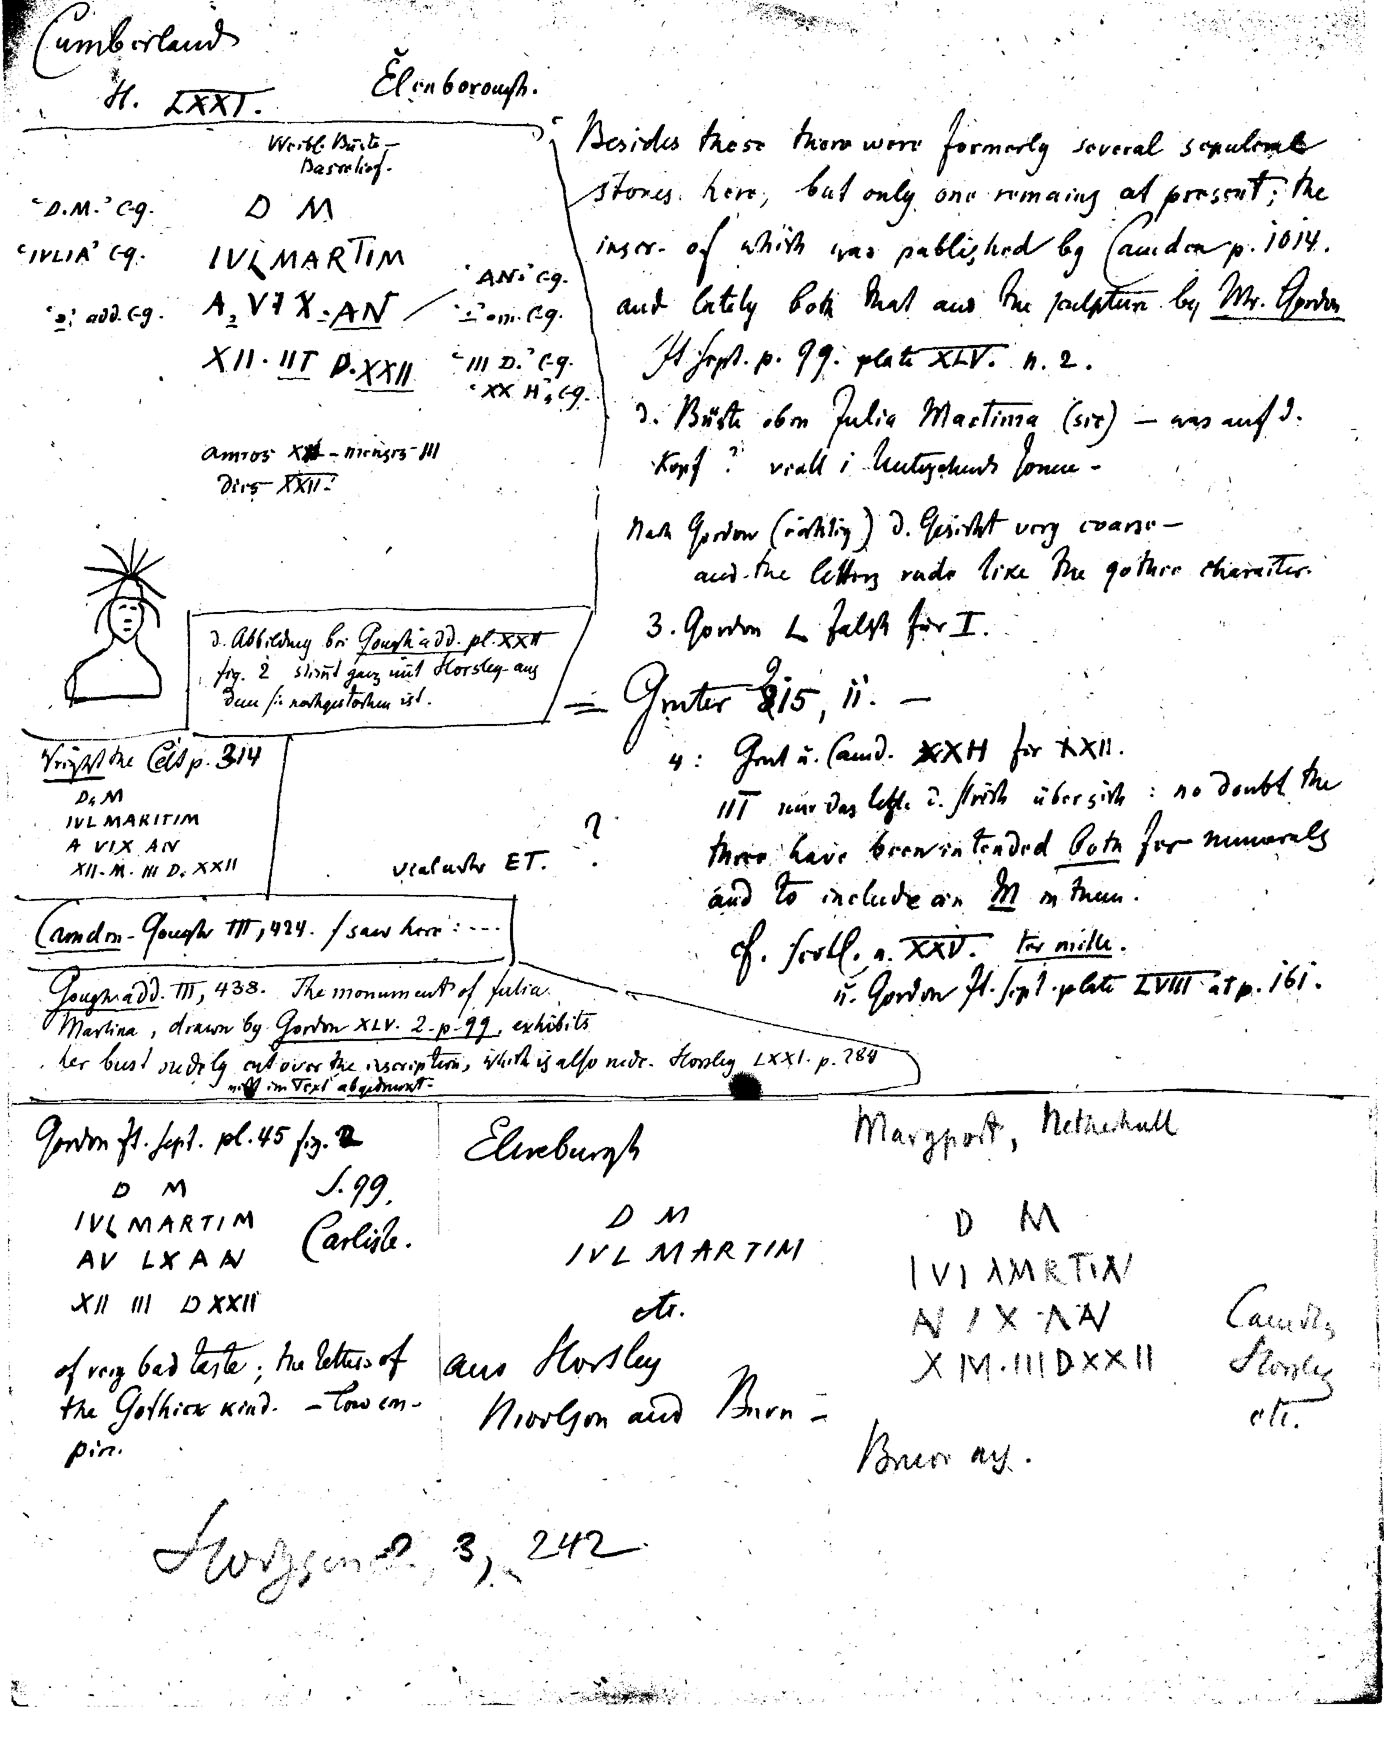 Cumberland
H. LXXI.
Elenborough.
Weibl. Büste
Basrelief.
"D.M." C-g.
D M
"IVLIA" C-g.
IVL MARTIM
"AN." C-g.
"2" add. C-g.
A VIX AN
om. C-g.
XII · IIT D. XXII
"III D." C-g.
"XX H" C-g.
annos XII - menses III
dies XXII.
Besides these there were formerly several sepulcral
stones here, but only one remains at present; the
inscr. of which was published by Camden p. 1014.
and lately both that and the sculpture by Mr. Gordon
It. Sept. p. 99. plate XLV. n. 2.
d. Büste oben Julia Martima (sic) — was auf d.
Kopf ?
Nach Gordon (richtig) d. Gesicht very coarse —
and the letters rude like the gothic character.
3. Gordon L falsch für I.
d. Abbildung bei Gough add. pl. XXII
fig. 2 stimt ganz mit Horsley aus
dem sie nachgestochen ist.
= Gruter 915, 11. —
4: Grut u. Camd. XXH für XXII.
IIT nur das letzte d. Strich über sich : no doubt the
three have been intended both for numerals
and to include an M in them.
cf. Scotl. n. XXV. ter mille.
u. Gordon It. Sept. plate LVIII at p. 161.
Wright the Celt p. 314
D. M
IVL MARITIM
A VIX AN
XII. M. III D. XXII
ET. ?
Camden-Gough III, 424. I saw here : ....
Gough add. III, 438. The monument of Julia
Martina, drawn by Gordon XLV. 2. p. 99, exhibits
her bust rudely cut over the inscription, which is also rude. Horsley LXXI. p. 284
nicht im Text abgedruckt
Gordon It. Sept. pl. 45 fig. 2
D M
S. 99.
IVL MARTIM
Carlisle.
AV LX AN
XII III D XXII
of very bad taste; the letters of
the Gothick kind. — Low em-
pire.
Elneburgh
D M
IVL MARTIM
etc.
aus Horsley
Nicolson and Burn
Maryport, Netherhall
D M
IVI AMRTIN
N I X AN
X M. III D XX II
Camden
Horsley
etc.
Bruce ms.
Hodgson 2, 3, 242